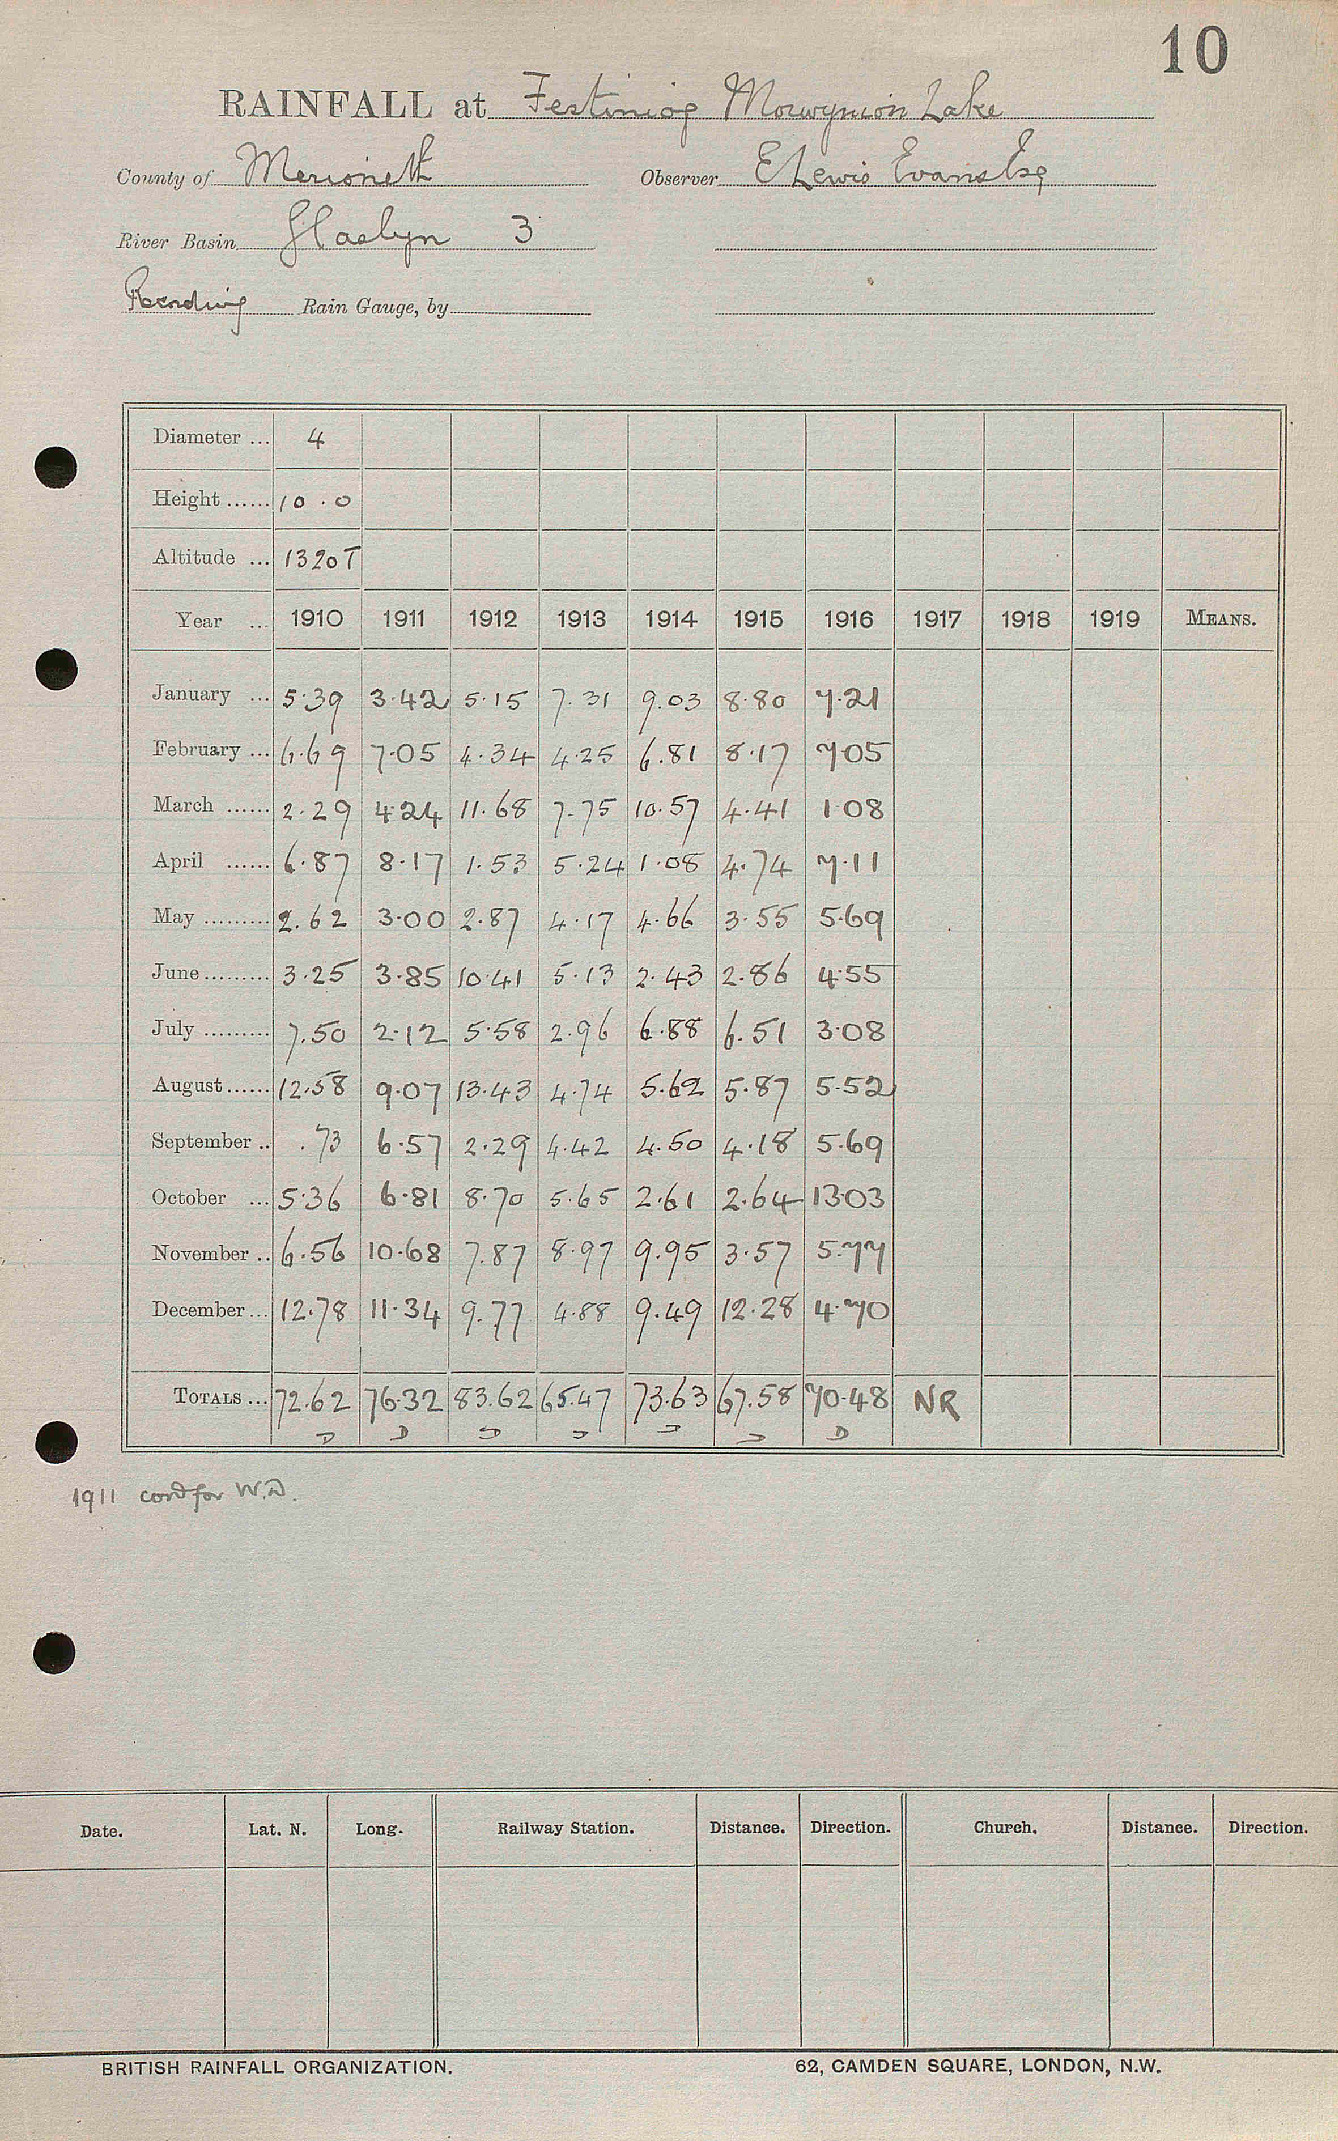 10
RAINFALL at Festiniog Morwynion Lake
County of Merioneth Observer E Lewis Evans Esq
River Basin Glaslyn 3
Rain Gauge, by
Diameter ... 4
Height ...... 10.0
Altitude ... 1320 T
Year ... 1910 1911 1912 1913 1914 1915 1916 1917 1918 1919 MEANS.
January ... 5.39 3.42 5.15 7.31 9.03 8.80 7.21
February ... 6.69 7.05 4.34 4.25 6.81 8.17 7.05
March ...... 2.29 4.24 11.68 7.75 10.57 4.41 1.08
April ...... 6.87 8.17 1.53 5.24 1.08 4.74 7.11
May ......... 2.62 3.00 2.87 4.17 4.66 3.55 5.69
June ......... 3.25 3.85 10.41 5.13 2.43 2.86 4.55
July ......... 7.50 2.12 5.58 2.96 6.88 6.51 3.08
August ...... 12.58 9.07 13.43 4.74 5.62 5.87 5.52
September .. .73 6.57 2.29 4.42 4.50 4.18 5.69
October ... 5.36 6.81 8.70 5.65 2.61 2.64 13.03
November .. 6.56 10.68 7.87 8.97 9.95 3.57 5.77
December ... 12.78 11.34 9.77 4.88 9.49 12.28 4.70
TOTALS ... 72.62 76.32 83.62 65.47 73.63 67.58 70.48 NR
D D D D D D D
1911 cord for W.D.
Date. Lat. N. Long. Railway Station. Distance. Direction. Church. Distance. Direction.
BRITISH RAINFALL ORGANIZATION. 62, CAMDEN SQUARE, LONDON, N.W.